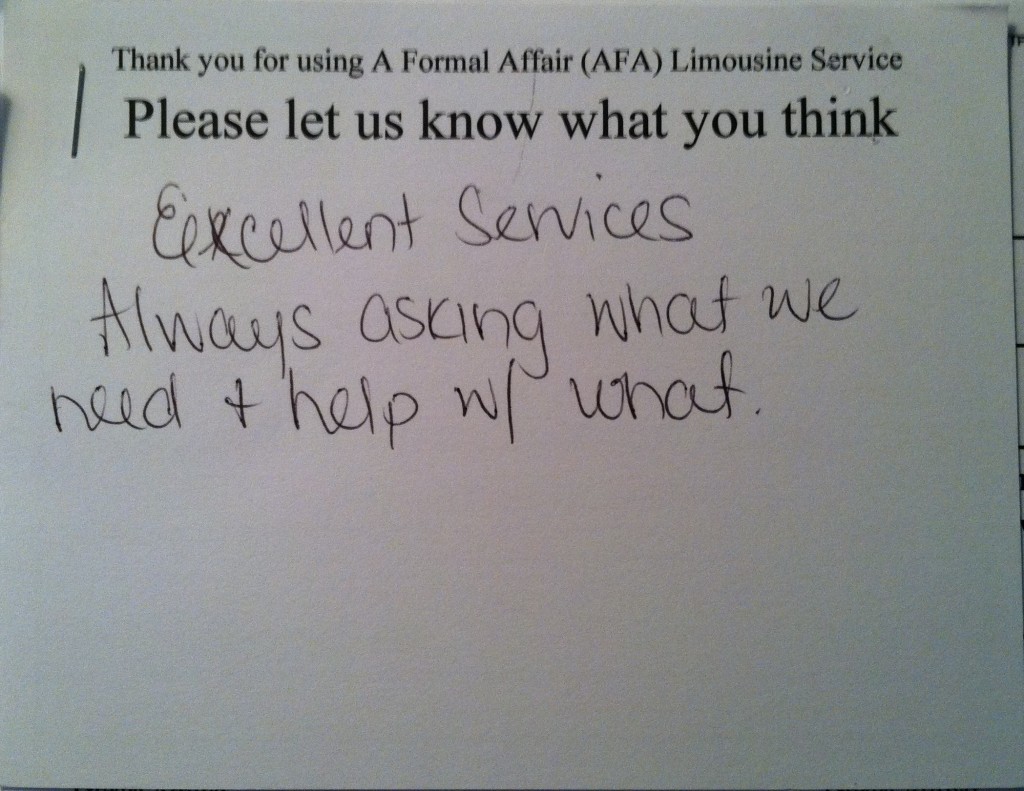 Thank you for using A Formal Affair (AFA) Limousine Service
Please let us know what you think
Excellent Services
Always asking what we
need + help w/ what.